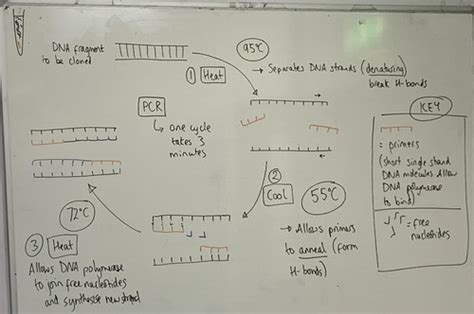 DNA fragment
to be cloned
① Heat
95°C
→ Separates DNA strands (denaturing)
break H-bonds
PCR
↳ one cycle
takes 3
minutes
KEY
= primers
(short single strand
DNA molecules allow
DNA polymerase
to bind)
= free
nucleotides
② Cool
55°C
→ Allows primers
to anneal (form
H-bonds)
72°C
③ Heat
Allows DNA polymerase
to join free nucleotides
and synthesise new strand